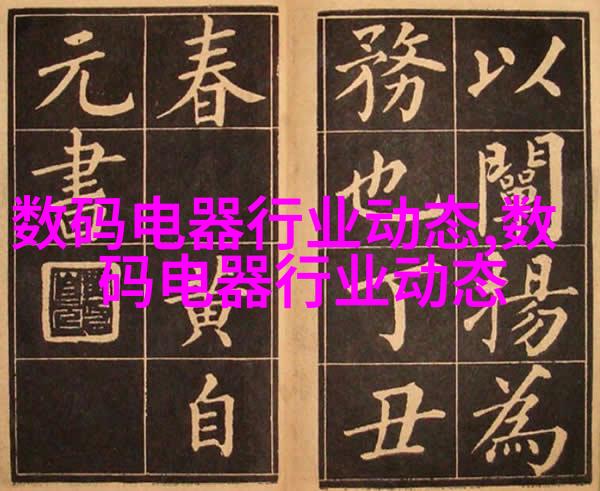 数码电器行业动态,数
码电器行业动态
以闡揚為
務也丁丑
春黃自
元書